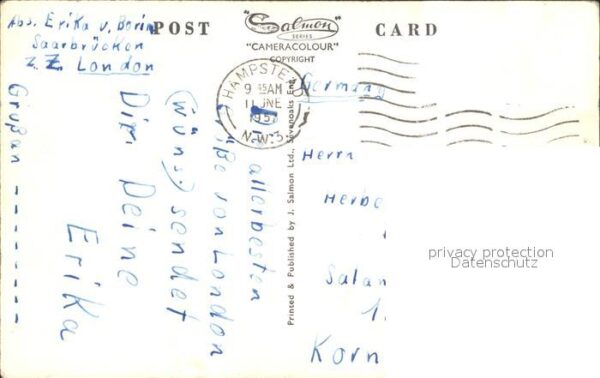 Abs. Erika v. Borin
Saarbrücken
z. Z. London
POST
Salmon
SERIES
"CAMERACOLOUR"
COPYRIGHT
CARD
HAMPSTEAD
9 45AM
11 JNE
195
N.W.3.
Germany
allerbesten
von London
(Wünsj sendet
Dir, Deine
Erika
Grüßen
Printed & Published by J. Salmon Ltd., Sevenoaks Eng.
Herrn
Herbe
Salan
1.
Korn
privacy protection
Datenschutz